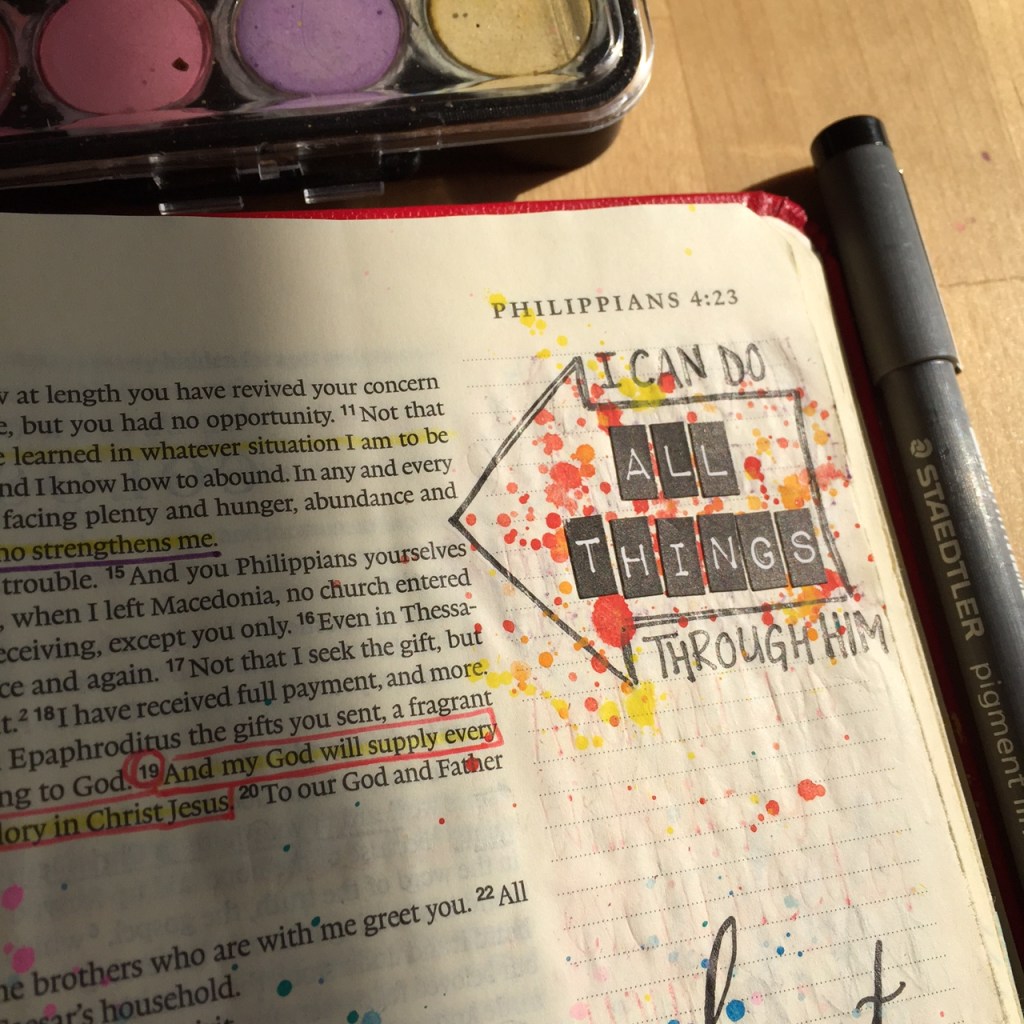 PHILIPPIANS 4:23
at length you have revived your concern
, but you had no opportunity. 11 Not that
learned in whatever situation I am to be
nd I know how to abound. In any and every
facing plenty and hunger, abundance and
ho strengthens me.
trouble. 15 And you Philippians yourselves
, when I left Macedonia, no church entered
eceiving, except you only. 16 Even in Thessa-
ce and again. 17 Not that I seek the gift, but
t.2 18 I have received full payment, and more.
Epaphroditus the gifts you sent, a fragrant
ng to God. 19 And my God will supply every
lory in Christ Jesus. 20 To our God and Father
me greet you. 22 All
he brothers who are with me greet you. 22 All
esar's household.
I CAN DO
ALL
THINGS
THROUGH HIM
STAEDTLER pigment